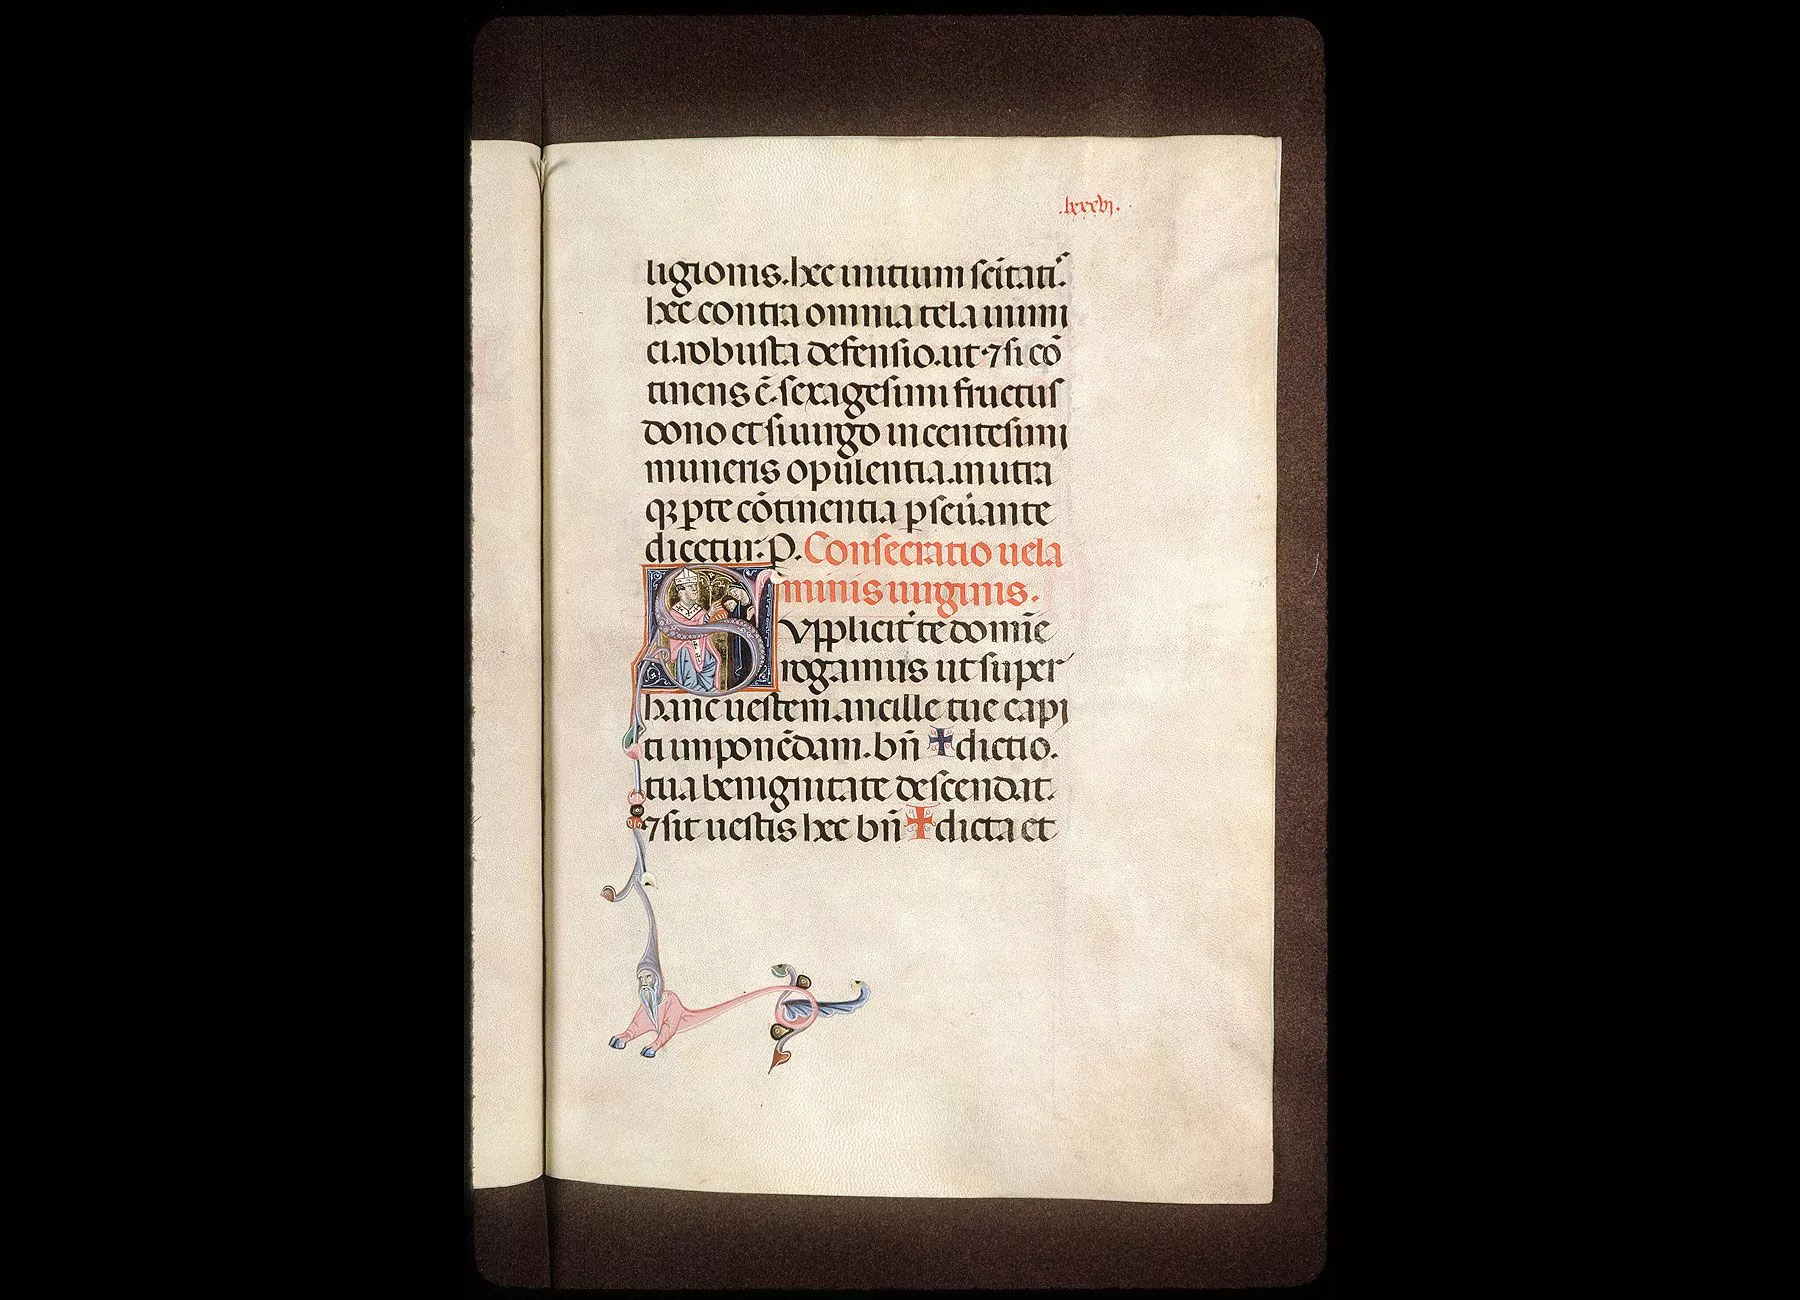 .lxxxvj.
ligionis. hec initium sc̄itatis.
hec contra omnia tela inimi
ci. robusta defensio. ut ⁊ si cō
tinens ē. sexagesimi fructus
dono et si uirgo in centesimi
muneris opulentia. in utra
qꝫ ꝑte cōtinentia ꝑseūante
dicetur. P. Consecratio uela
minis uirginis.
Supplicit̾ te domīe
rogamus ut super
hanc uestem ancille tue capi
ti imponēdam. bn̄ ✝ dictio.
tua benignitate descendat.
⁊ sit uestis hec bn̄ ✝ dicta et